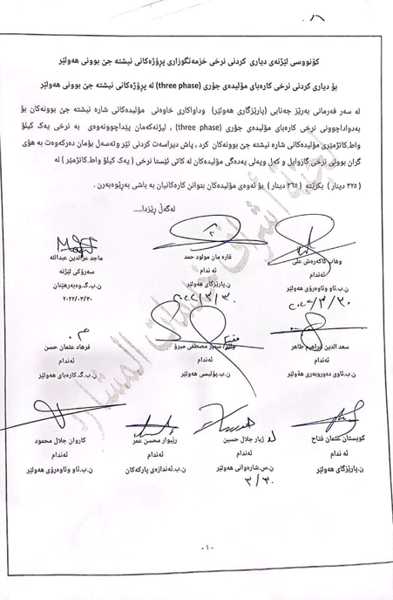 كۆنووسی لێژنەی دیاری کردنی نرخی خزمەتگوزاری پرۆژەکانی نیشتە جێ بوونی هەولێر
بۆ دیاری کردنی نرخی کارەبای مۆلیدەی جۆری (three phase) لە پرۆژەکانی نیشتە جێ بوونی هەولێر
لە سەر فەرمانی بەرێز جەنابی (پارێزگاری هەولێر) وداواکاری خاوەنی مۆلیدەکانی شارە نیشتە جێ بوونەکان بۆ
بەدواداچوونی نرخی کارەبای مۆلیدەی جۆری (three phase) , لیژنەکەمان پێداچوونەوەی بە نرخی یەک کیلۆ
واط.کاتژمێری مۆلیدەکانی شارە نیشتە جێ بوونەکان کرد , پاش دیراسەت کردنی نرخ ولەسەل بۆمان دەرکەوت بە هۆی
گران بوونی نرخی گازوایل و کەل وپەلی یەدەگی مۆلیدەکان لە کاتی ئێستا نرخی ( یەک کیلۆ واط.کاتژمێر ) لە
(٢٧٥ دینار ) بکرێتە ( ٣٦٥ دینار ) بۆ ئەوەی مۆلیدەکان بتوانن کارەکانیان بە باشی بەڕێوەبەرن .
لەگەڵ ڕێزدا...
وهاب کاکەرەش علی
ئەندام
ن.ب.ئاو وئاوەرۆی هەولێر
٢٠٢٢/٣/٣٠
قارە مان مولود حمد
ئە ندام
ن.پارێزگای هەولێر
٢٠٢٢/٣/٣٠
ماجد عزالدین عبدالله
سەرۆکی لێژنە
ن.ب.گ.وەبەرهێنان
٢٠٢٢/٣/٣٠
سعد الدین ابراهیم طاهر
ئەندام
ن.ب.ئاوی دەوروبەری هەولێر
مصطفی میرۆ
ئەندام
ن.ب.پۆلیسی هەولێر
فرهاد عثمان حسن
ئەندام
ن.ب.گ.کارەبای هەولێر
کوێستان عثمان فتاح
ئە ندام
ن.پارێزگای هەولێر
ژیار جلال حسین
ئەندام
ن.س.شارەوانی هەولێر
٣/٣٠
رێبوار محسن عمر
ئەندام
ن.ب.ئەندازەی پارکەکان
کاروان جلال محمود
ئەندام
ن.ب.ئاو وئاوەرۆی هەولێر
-١-